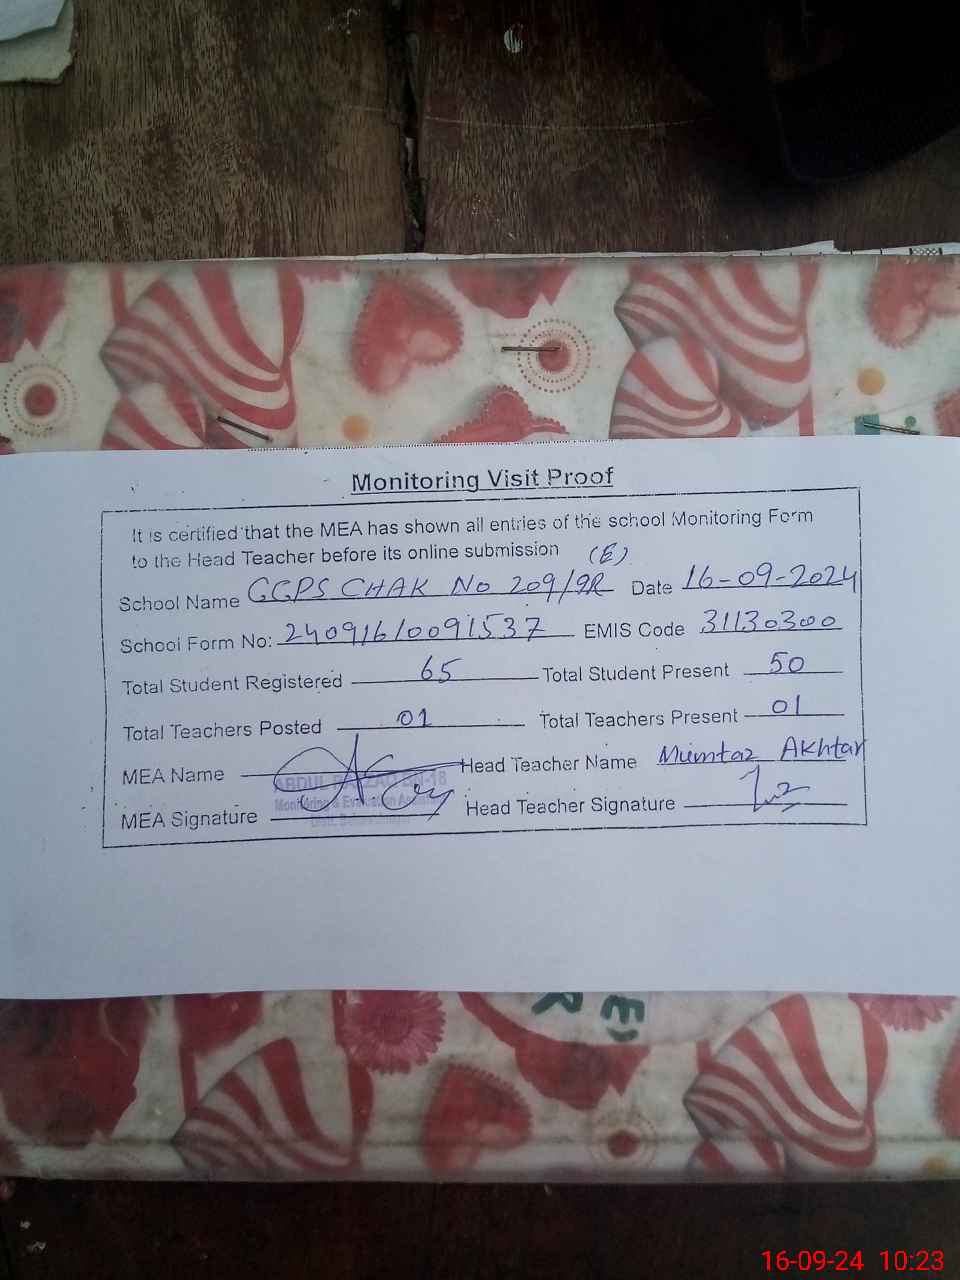 Monitoring Visit Proof
It is certified that the MEA has shown all entries of the school Monitoring Form
to the Head Teacher before its online submission (E)
School Name GGPS CHAK No 209/9R Date 16-09-2024
School Form No: 240916/0091537 EMIS Code 31130300
Total Student Registered 65 Total Student Present 50
Total Teachers Posted 01 Total Teachers Present 01
MEA Name Head Teacher Name Mumtaz Akhtar
ABDUL
Monitoring & Evaluation
MEA Signature Head Teacher Signature
16-09-24 10:23